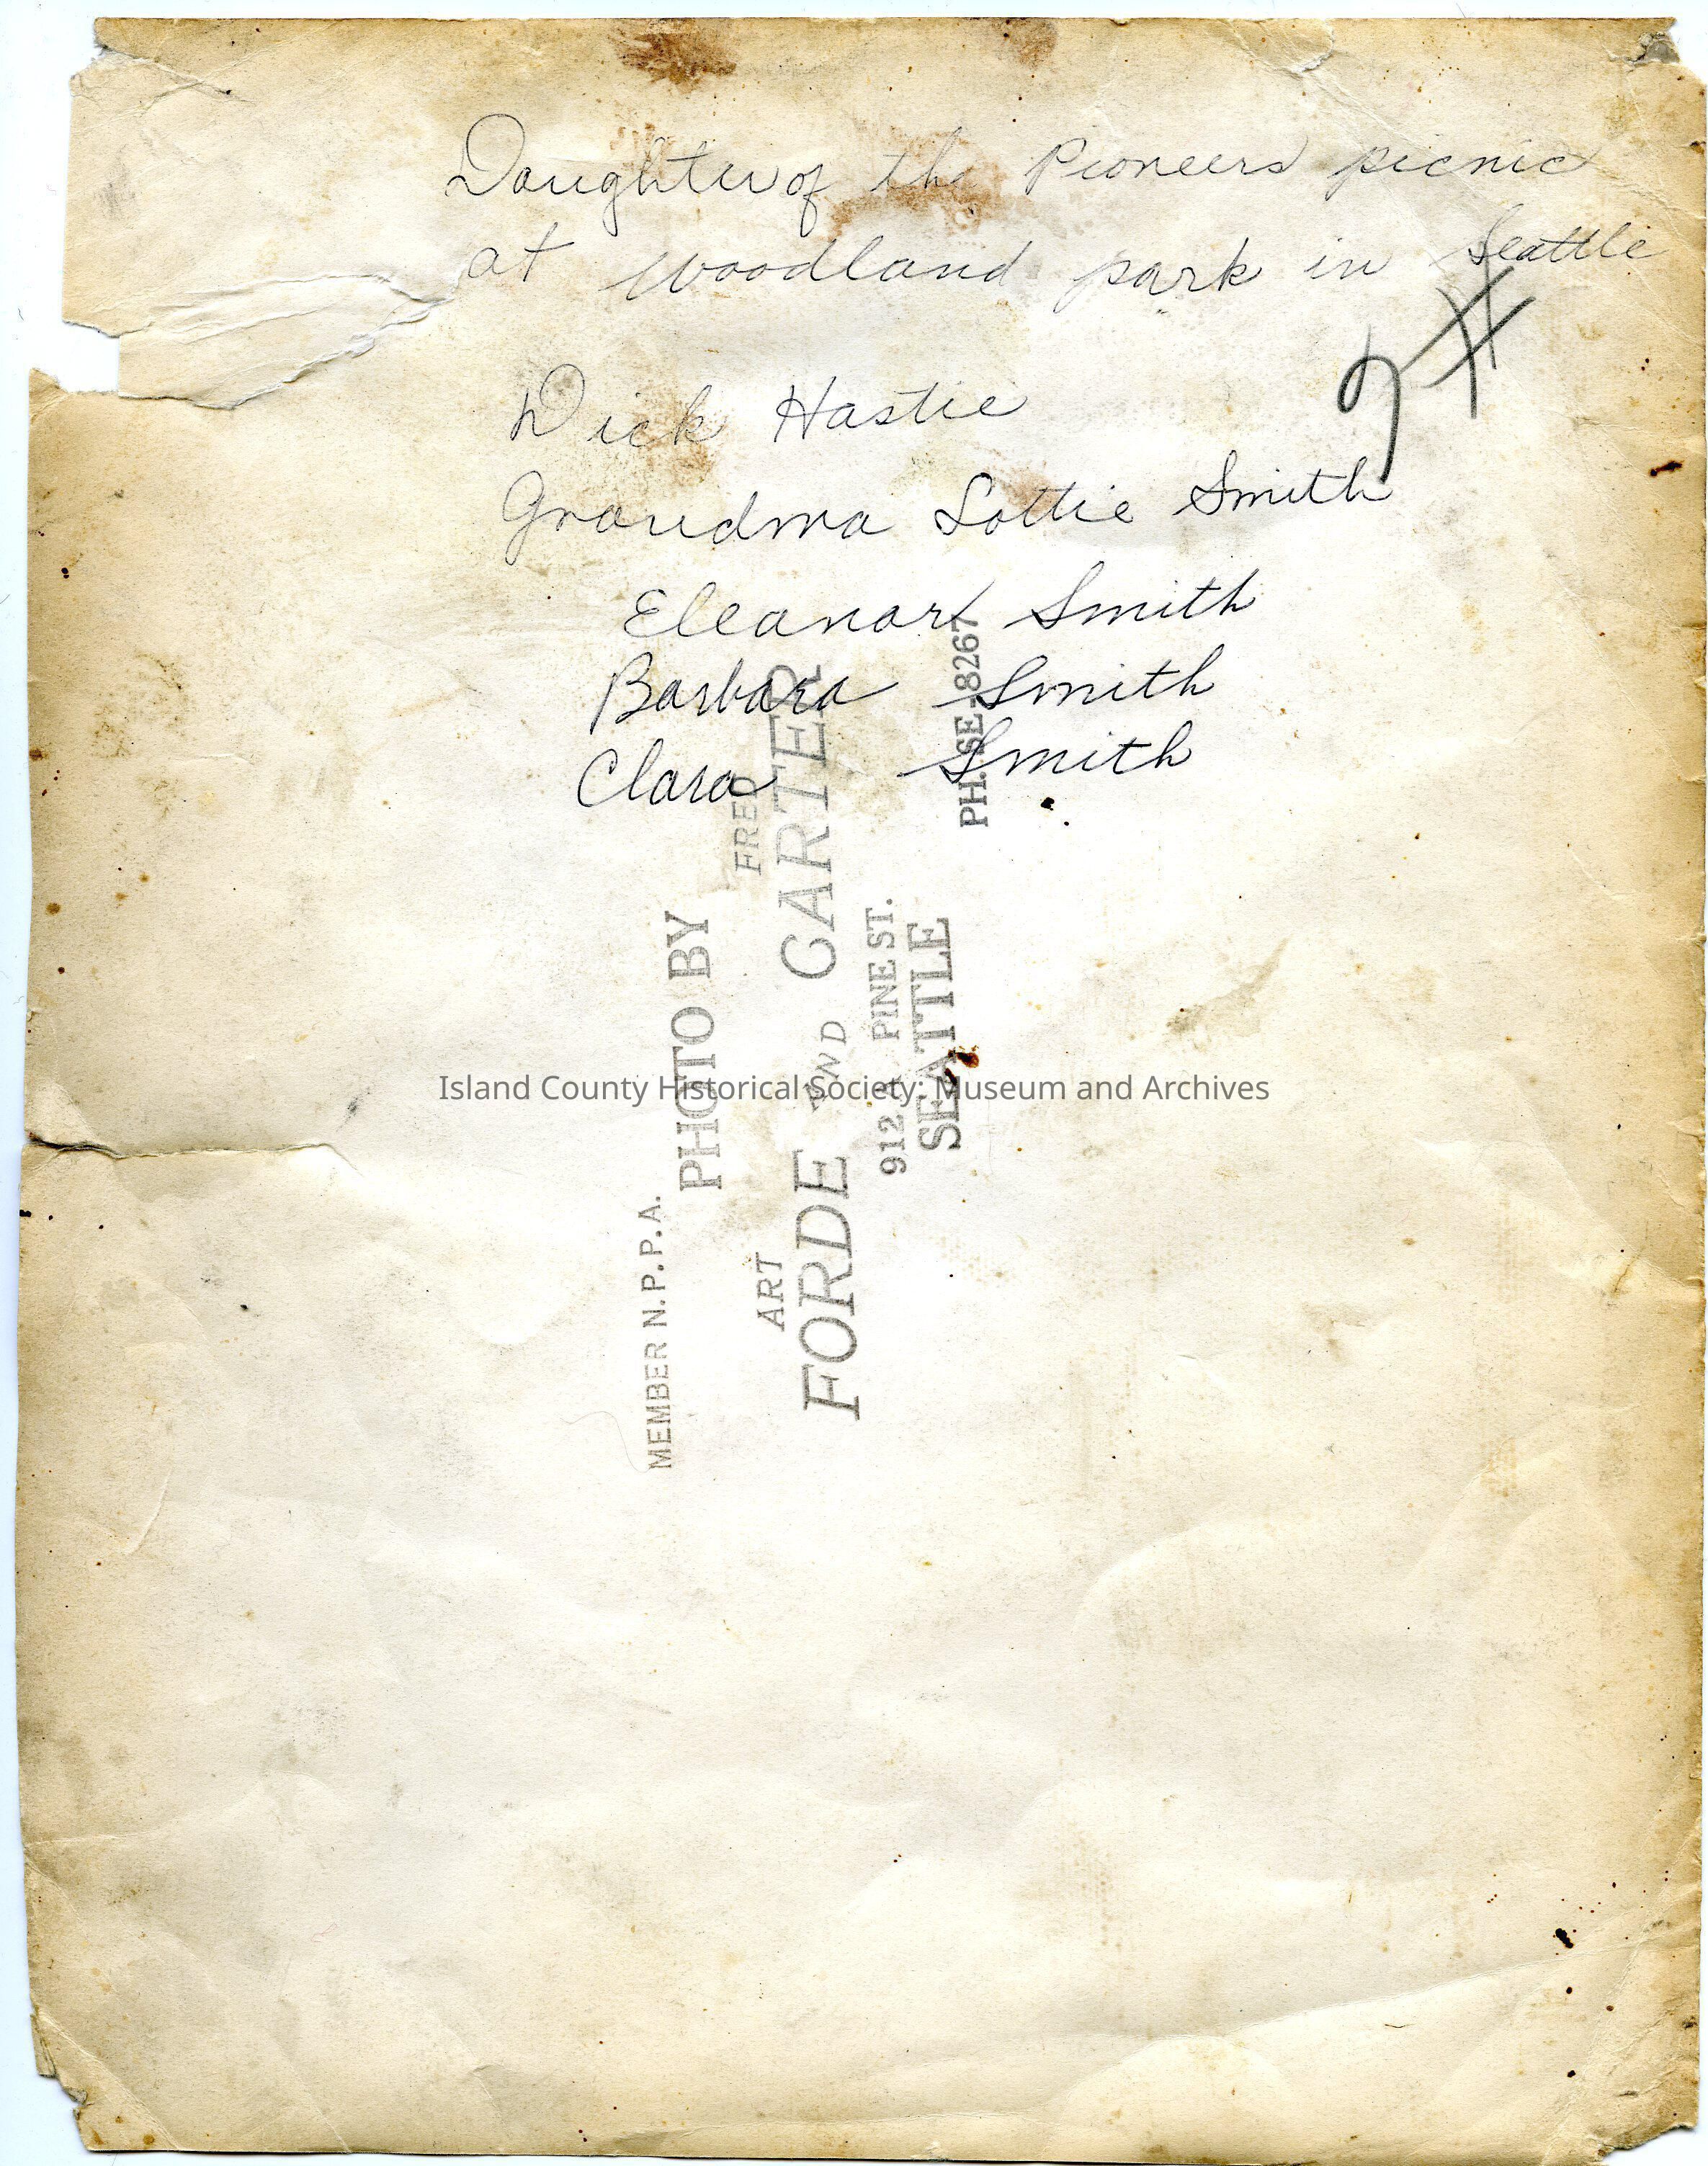 Daughter of the Pioneers picnic
at Woodland park in Seattle
# 9
Dick Hastie
Grandma Lottie Smith
Eleanor Smith
Barbara Smith
Clara Smith
MEMBER N.P.P.A.
PHOTO BY
ART FRED
FORDE AND CARTER
912 A PINE ST.
SEATTLE
PH. SE-8267
Island County Historical Society: Museum and Archives